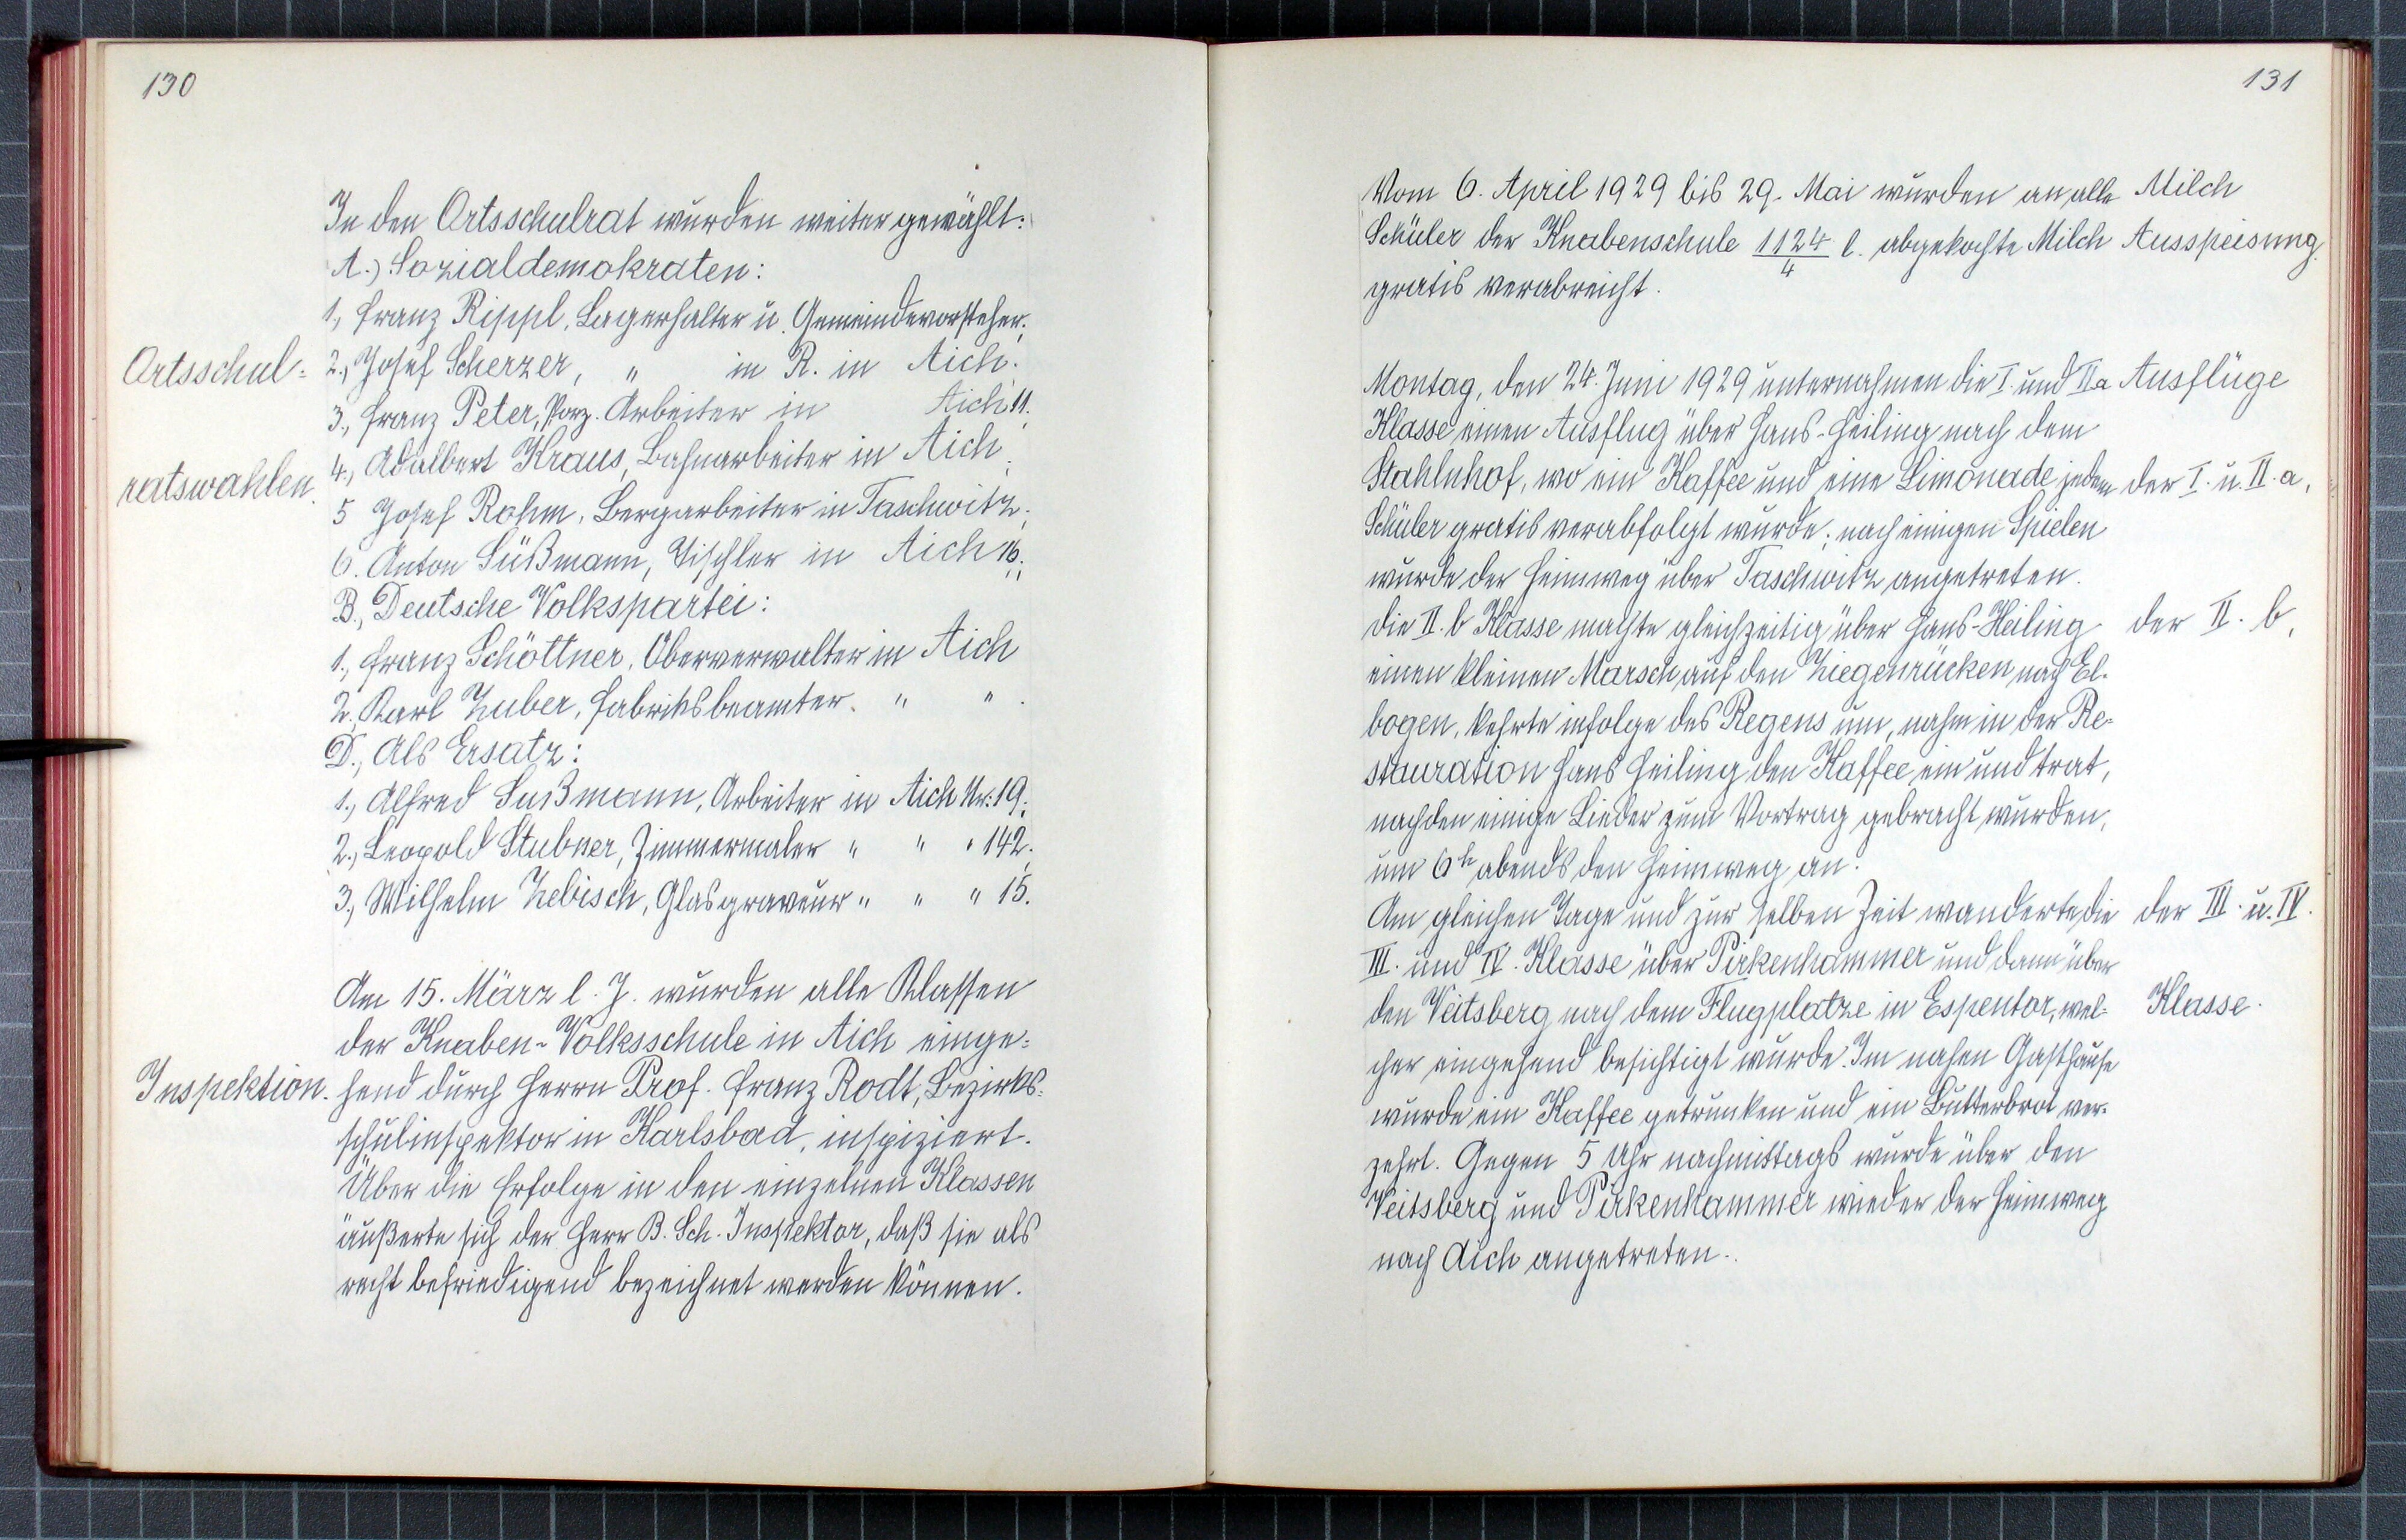 130
In den Ortsschulrat wurden weiter gewählt:
A.) Sozialdemokraten:
1., Franz Rippl, Lagerhalter u. Gemeindevorsteher;
Ortsschul= 2., Josef Scherzer, " in R. in Aich.
3., Franz Peter, Porz. Arbeiter in Aich 11.
ratswahlen. 4., Adalbert Kraus, Bahnarbeiter in Aich;
5 Josef Rohm, Bergarbeiter in Taschwitz;
6. Anton Süßmann, Tischler in Aich 16;
B., Deutsche Volkspartei:
1., Franz Schöttner, Oberverwalter in Aich
2. Karl Zuber, Fabriksbeamter. " " .
D., Als Ersatz:
1., Alfred Sußmann, Arbeiter in Aich Nr: 19;
2., Leopold Stubner, Zimmermaler " " " 142.
3., Wilhelm Zebisch, Glasgraveur " " " 15.
Am 15. März l. J. wurden alle Klassen
der Knaben-Volksschule in Aich einge=
Inspektion. hend durch Herrn Prof. Franz Rodt, Bezirks=
schulinspektor in Karlsbad, inspiziert.
Über die Erfolge in den einzelnen Klassen
äußerte sich der Herr B. Sch. Inspektor, daß sie als
recht befriedigend bezeichnet werden können.
131
Vom 6. April 1929 bis 29. Mai wurden an alle Milch
Schüler der Knabenschule 1124/4 l. abgekochte Milch Ausspeisung.
gratis verabreicht.
Montag, den 24. Juni 1929 unternahmen die I. und II.a Ausflüge
Klasse einen Ausflug über Hans-Heiling nach dem
Stahlnhof, wo ein Kaffee und eine Limonade jedem der I. u. II. a,
Schüler gratis verabfolgt wurde; nach einigen Spielen
wurde der Heimweg über Taschwitz angetreten.
Die II. b Klasse machte gleichzeitig über Hans-Heiling der II. b,
einen kleinen Marsch auf den Ziegenrücken nach El-
bogen, kehrte infolge des Regens um, nahm in der Re-
stauration Hans Heiling den Kaffee ein und trat,
nachden einige Lieder zum Vortrag gebracht wurden,
um 6h abends den Heimweg an.
Am gleichen Tage und zur selben Zeit wanderte die der III. u. IV.
III. und IV. Klasse über Pirkenhammer und dann über
den Veitsberg nach dem Flugplatze in Espentor, wel- Klasse.
cher eingehend besichtigt wurde. Im nahen Gasthause
wurde ein Kaffee getrunken und ein Butterbrot ver-
zehrt. Gegen 5 Uhr nachmittags wurde über den
Veitsberg und Pirkenhammer wieder der Heimweg
nach Aich angetreten.